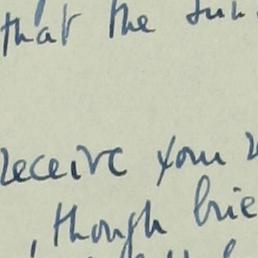 that the sun
receive your
, though brie